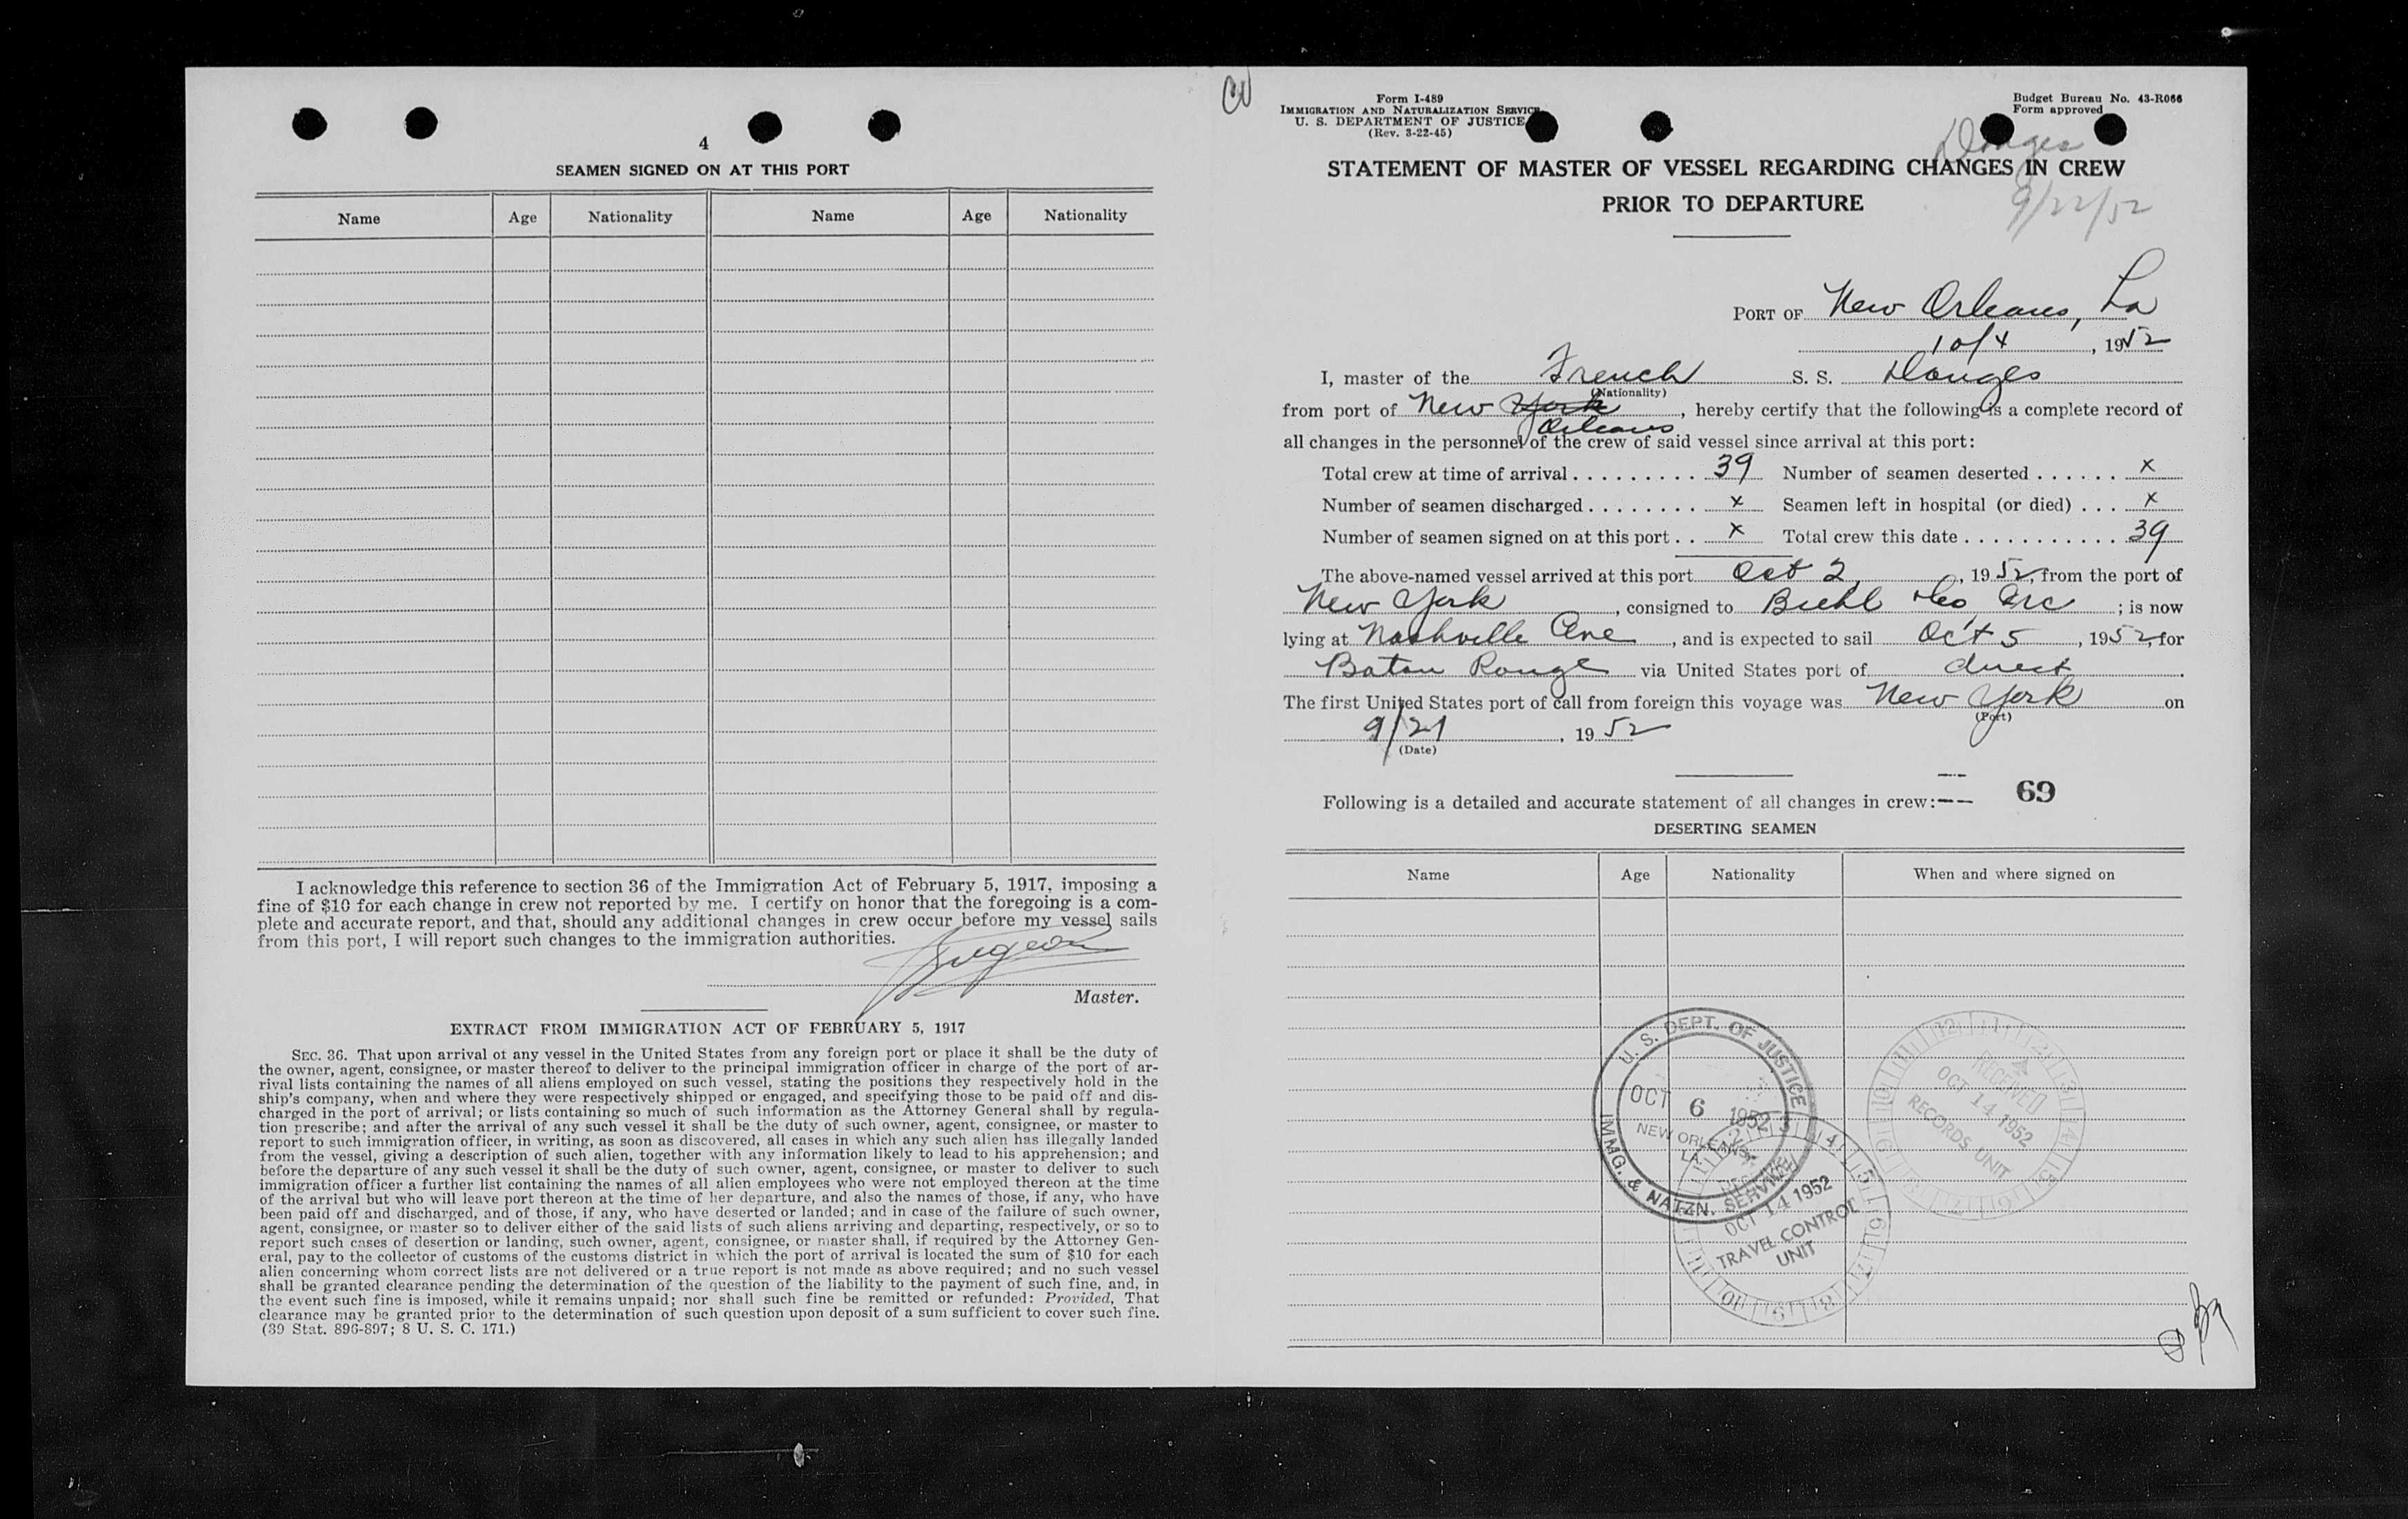 4
SEAMEN SIGNED ON AT THIS PORT
Name Age Nationality Name Age Nationality
I acknowledge this reference to section 36 of the Immigration Act of February 5, 1917, imposing a
fine of $10 for each change in crew not reported by me. I certify on honor that the foregoing is a com-
plete and accurate report, and that, should any additional changes in crew occur before my vessel sails
from this port, I will report such changes to the immigration authorities.
Master.
EXTRACT FROM IMMIGRATION ACT OF FEBRUARY 5, 1917
SEC. 36. That upon arrival of any vessel in the United States from any foreign port or place it shall be the duty of
the owner, agent, consignee, or master thereof to deliver to the principal immigration officer in charge of the port of ar-
rival lists containing the names of all aliens employed on such vessel, stating the positions they respectively hold in the
ship's company, when and where they were respectively shipped or engaged, and specifying those to be paid off and dis-
charged in the port of arrival; or lists containing so much of such information as the Attorney General shall by regula-
tion prescribe; and after the arrival of any such vessel it shall be the duty of such owner, agent, consignee, or master to
report to such immigration officer, in writing, as soon as discovered, all cases in which any such alien has illegally landed
from the vessel, giving a description of such alien, together with any information likely to lead to his apprehension; and
before the departure of any such vessel it shall be the duty of such owner, agent, consignee, or master to deliver to such
immigration officer a further list containing the names of all alien employees who were not employed thereon at the time
of the arrival but who will leave port thereon at the time of her departure, and also the names of those, if any, who have
been paid off and discharged, and of those, if any, who have deserted or landed; and in case of the failure of such owner,
agent, consignee, or master so to deliver either of the said lists of such aliens arriving and departing, respectively, or so to
report such cases of desertion or landing, such owner, agent, consignee, or master shall, if required by the Attorney Gen-
eral, pay to the collector of customs of the customs district in which the port of arrival is located the sum of $10 for each
alien concerning whom correct lists are not delivered or a true report is not made as above required; and no such vessel
shall be granted clearance pending the determination of the question of the liability to the payment of such fine, and, in
the event such fine is imposed, while it remains unpaid; nor shall such fine be remitted or refunded: Provided, That
clearance may be granted prior to the determination of such question upon deposit of a sum sufficient to cover such fine.
(39 Stat. 896-897; 8 U. S. C. 171.)
Form I-489
IMMIGRATION AND NATURALIZATION SERVICE
U. S. DEPARTMENT OF JUSTICE
(Rev. 3-22-45)
Budget Bureau No. 43-R066
Form approved
Donges
9/22/52
STATEMENT OF MASTER OF VESSEL REGARDING CHANGES IN CREW
PRIOR TO DEPARTURE
PORT OF New Orleans, La
10/4, 1952
I, master of the French S. S. Donges
(Nationality)
from port of New York, hereby certify that the following is a complete record of
Orleans
all changes in the personnel of the crew of said vessel since arrival at this port:
Total crew at time of arrival . . . . . . . . . 39 Number of seamen deserted . . . . . . x
Number of seamen discharged . . . . . . . . x Seamen left in hospital (or died) . . . x
Number of seamen signed on at this port . . x Total crew this date . . . . . . . . . . . 39
The above-named vessel arrived at this port Oct 2, 1952, from the port of
New York, consigned to Biehl &Co Inc; is now
lying at Nashville Ave, and is expected to sail Oct 5, 1952, for
Baton Rouge via United States port of direct.
The first United States port of call from foreign this voyage was New York on
(Port)
9/21, 1952
(Date)
Following is a detailed and accurate statement of all changes in crew:—— 69
DESERTING SEAMEN
Name Age Nationality When and where signed on
U. S. DEPT. OF JUSTICE
OCT 6 1952
NEW ORLEANS,
LA.
IMMG. & NATZN. SERVICE
OCT 14 1952
TRAVEL CONTROL
UNIT
RECEIVED
OCT 14 1952
RECORDS UNIT